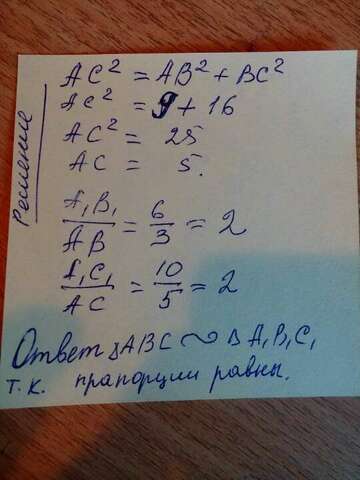 Решение
AC² = AB² + BC²
AC² = 9 + 16
AC² = 25
AC = 5.
A₁B₁/AB = 6/3 = 2
A₁C₁/AC = 10/5 = 2
Ответ ΔABC ~ ΔA₁B₁C₁
т.к. прапорции равны.